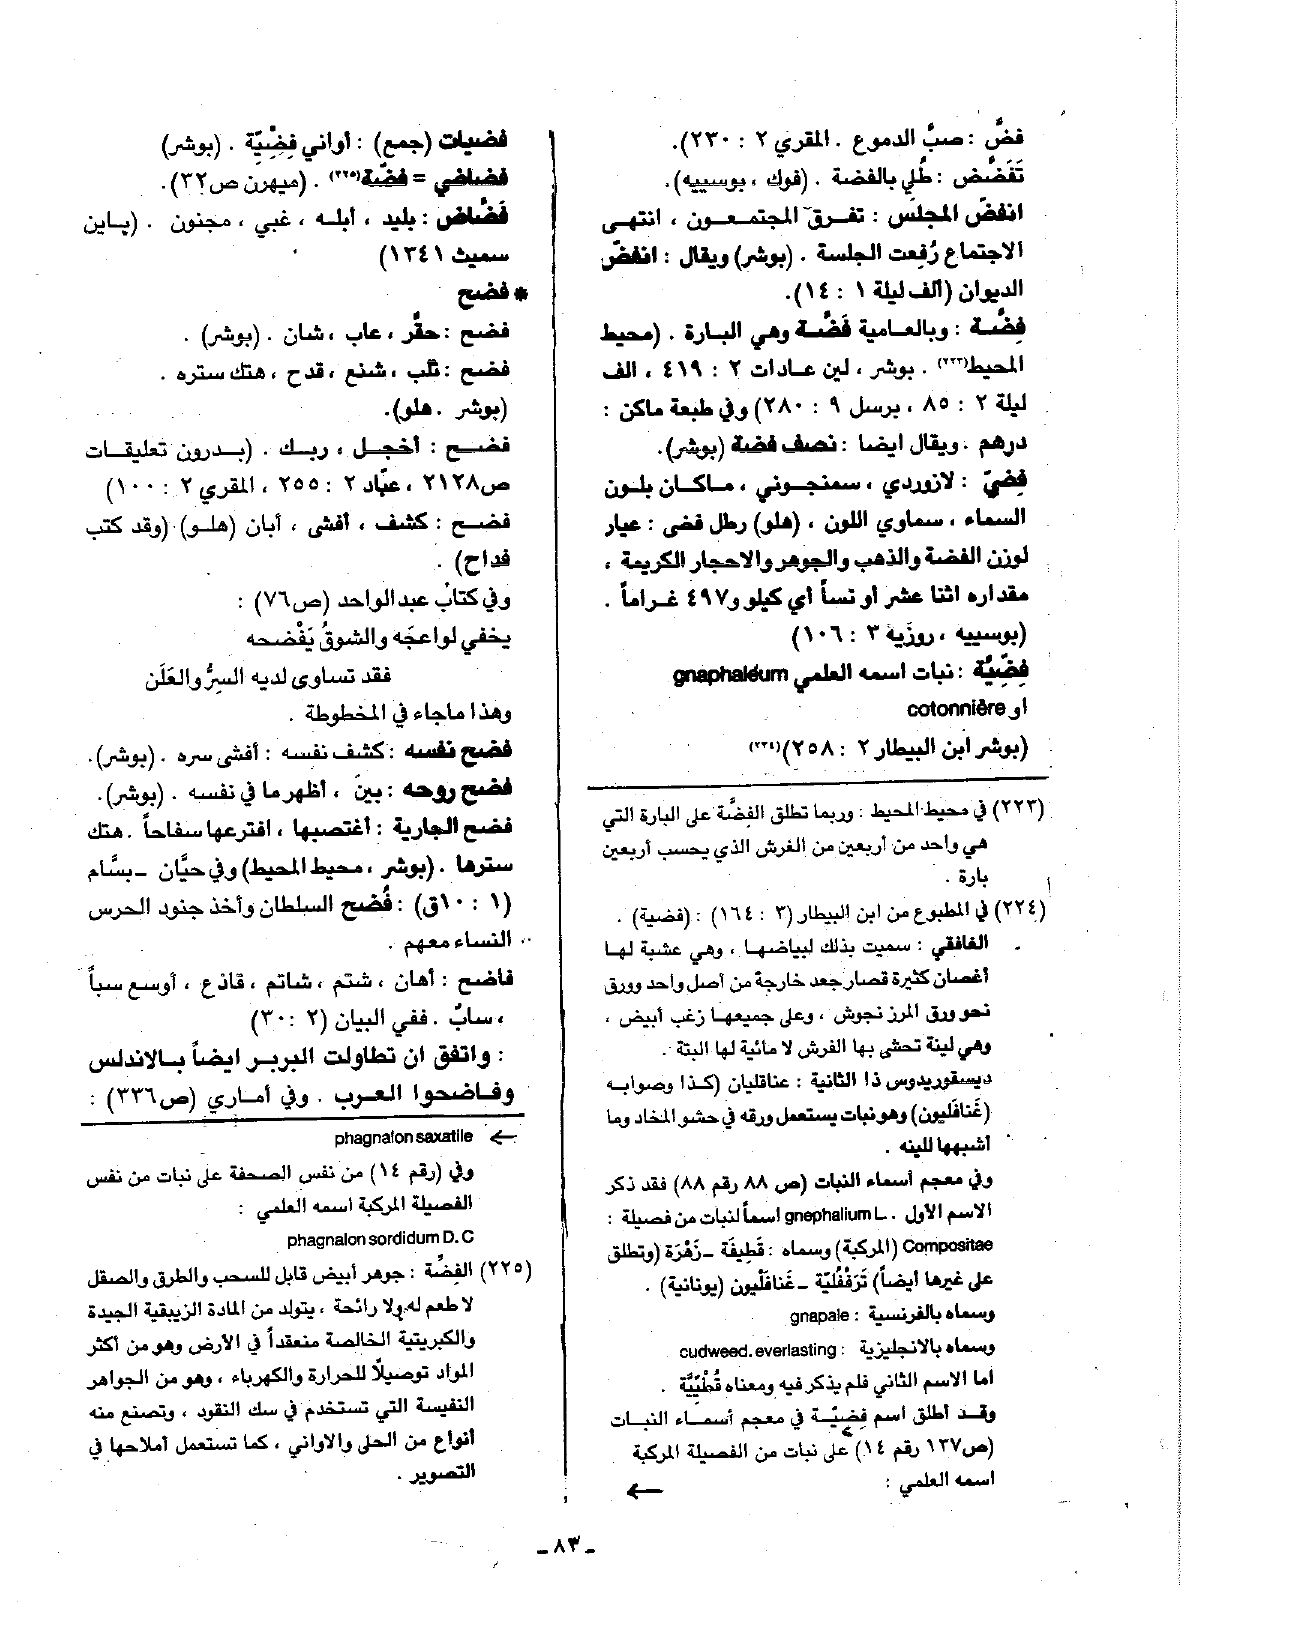 فضَّ : صبُّ الدموع . المقري ٢ : ٢٣٠).
تَفَضَّض : طُلي بالفضة . (فوك ، بوسييه).
انفضّ المجلس : تفرق المجتمعون ، انتهى
الاجتماع رُفعت الجلسة . (بوشر) ويقال : انفضّ
الديوان (الف ليلة ١ : ١٤).
فِضَّة : وبالعامية فَضَّة وهي البارة . (محيط
المحيط(٢٢٣) . بوشر ، لين عادات ٢ : ٤١٩ ، الف
ليلة ٢ : ٨٥ ، برسل ٩ : ٢٨٠) وفي طبعة ماكن :
درهم . ويقال ايضا : نصف فضة (بوشر).
فِضيّ : لازوردي ، سمنجوني ، ماكان بلون
السماء ، سماوي اللون ، (هلو) رطل فضي : عيار
لوزن الفضة والذهب والجوهر والاحجار الكريمة ،
مقداره اثنا عشر او نسأ أي كيلو و٤٩٧ غراماً .
(بوسييه ، روزية ٣ : ١٠٦)
فِضِّيَّة : نبات اسمه العلمي gnaphaléum
او cotonnière
(بوشر ابن البيطار ٢ : ٢٥٨)(٢٢٤)
(٢٢٣) في محيط المحيط : وربما تطلق الفِضَّة على البارة التي
هي واحد من أربعين من الغرش الذي يحسب أربعين
بارة .
(٢٢٤) في المطبوع من ابن البيطار (٣ : ١٦٤) : (فضية) .
الغافقي : سميت بذلك لبياضها ، وهي عشبة لها
أغصان كثيرة قصار جعد خارجة من أصل واحد وورق
نحو ورق المرز نجوش ، وعلى جميعها زغب أبيض ،
وهي لينة تحشى بها الفرش لا مائية لها البتة .
ديسقوريدوس ذا الثانية : عناقليان (كذا وصوابه
(غَنافَليون) وهو نبات يستعمل ورقه في حشو المخاد وما
أشبهها للينه .
وفي معجم أسماء النبات (ص ٨٨ رقم ٨٨) فقد ذكر
الاسم الأول . gnephalium L اسماً لنبات من فصيلة :
Compositae (المركبة) وسماه : قَطِيفَة ـ زَهْرَة (وتطلق
على غيرها أيضاً) تَرَفْفُليّة ـ غَنافَلْيون (يونانية) .
وسماه بالفرنسية : gnapale
وسماه بالانجليزية : cudweed.everlasting
أما الاسم الثاني فلم يذكر فيه ومعناه قُطْنِيَّة .
وقد أطلق اسم فِضِيّة في معجم أسماء النبات
(ص١٣٧ رقم ١٤) على نبات من الفصيلة المركبة
اسمه العلمي :
←
فضيات (جمع) : أواني فِضِّيّة . (بوشر)
فضاضي = فضّة(٢٢٥) . (ميهرن ص٣٢).
فَضَّاض : بليد ، أبله ، غبي ، مجنون . (پاين
سميث ١٣٤١)
* فضح
فضح : حقَّر ، عاب ، شان . (بوشر) .
فضح : ثلب ، شنع ، قدح ، هتك ستره .
(بوشر . هلو).
فضح : أخجل ، ربك . (بدرون تعليقات
ص٢١٢٨ ، عبّاد ٢ : ٢٥٥ ، المقري ٢ : ١٠٠)
فضح : كشف ، أفشى ، أبان (هلو) (وقد كتب
فداح) .
وفي كتاب عبد الواحد (ص٧٦) :
يخفي لواعجَه والشوقُ يَفْضحه
فقد تساوى لديه السرُّ والعَلَن
وهذا ماجاء في المخطوطة .
فضح نفسه : كشف نفسه : أفشى سره . (بوشر).
فضح روحه : بين ، أظهر ما في نفسه . (بوشر).
فضح الجارية : أغتصبها ، افترعها سفاحاً . هتك
سترها . (بوشر ، محيط المحيط) وفي حيَّان ـ بسَّام
(١ : ١٠ق) : فُضح السلطان وأخذ جنود الحرس
النساء معهم .
فاضح : أهان ، شتم ، شاتم ، قاذع ، أوسع سباً
، سابّ . ففي البيان (٢ : ٣٠)
: واتفق ان تطاولت البربر ايضاً بالاندلس
وفاضحوا العرب . وفي أماري (ص٣٣٦) :
← phagnalon saxatile
وفي (رقم ١٤) من نفس الصحفة على نبات من نفس
الفصيلة المركبة اسمه العلمي :
phagnalon sordidum D. C
(٢٢٥) الفضَّة : جوهر أبيض قابل للسحب والطرق والصقل
لا طعم له ولا رائحة ، يتولد من المادة الزيبقية الجيدة
والكبريتية الخالصة منعقداً في الأرض وهو من أكثر
المواد توصيلاً للحرارة والكهرباء ، وهو من الجواهر
النفيسة التي تستخدم في سك النقود ، وتصنع منه
أنواع من الحلى والاواني ، كما تستعمل أملاحها في
التصوير .
ـ ٨٣ ـ